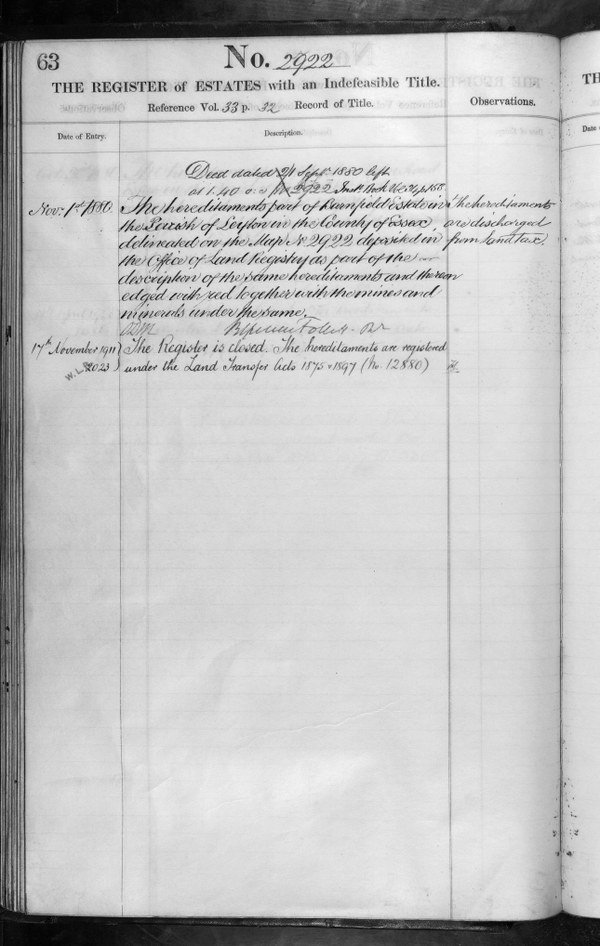 63
No. 2922
THE REGISTER of ESTATES with an Indefeasible Title.
Reference Vol. 33 p. 32 Record of Title.
Observations.
Date of Entry.
Description.
Deed dated 24 Septr. 1880 left
at 1.40 2922 Inst. Book
Nov: 1st 1880. The hereditaments part of Barnfield Estate in
the Parish of Leyton in the County of Essex,
delineated on the Map No 2922 deposited in
the Office of Land Registry as part of the
description of the same hereditaments and thereon
edged with red together with the mines and
minerals under the same.
the hereditaments
are discharged
from Land Tax.
Follett
17th November 1911 The Register is closed. The hereditaments are registered
2023 under the Land Transfer Acts 1875 & 1897 (No. 12880)
TH
Date